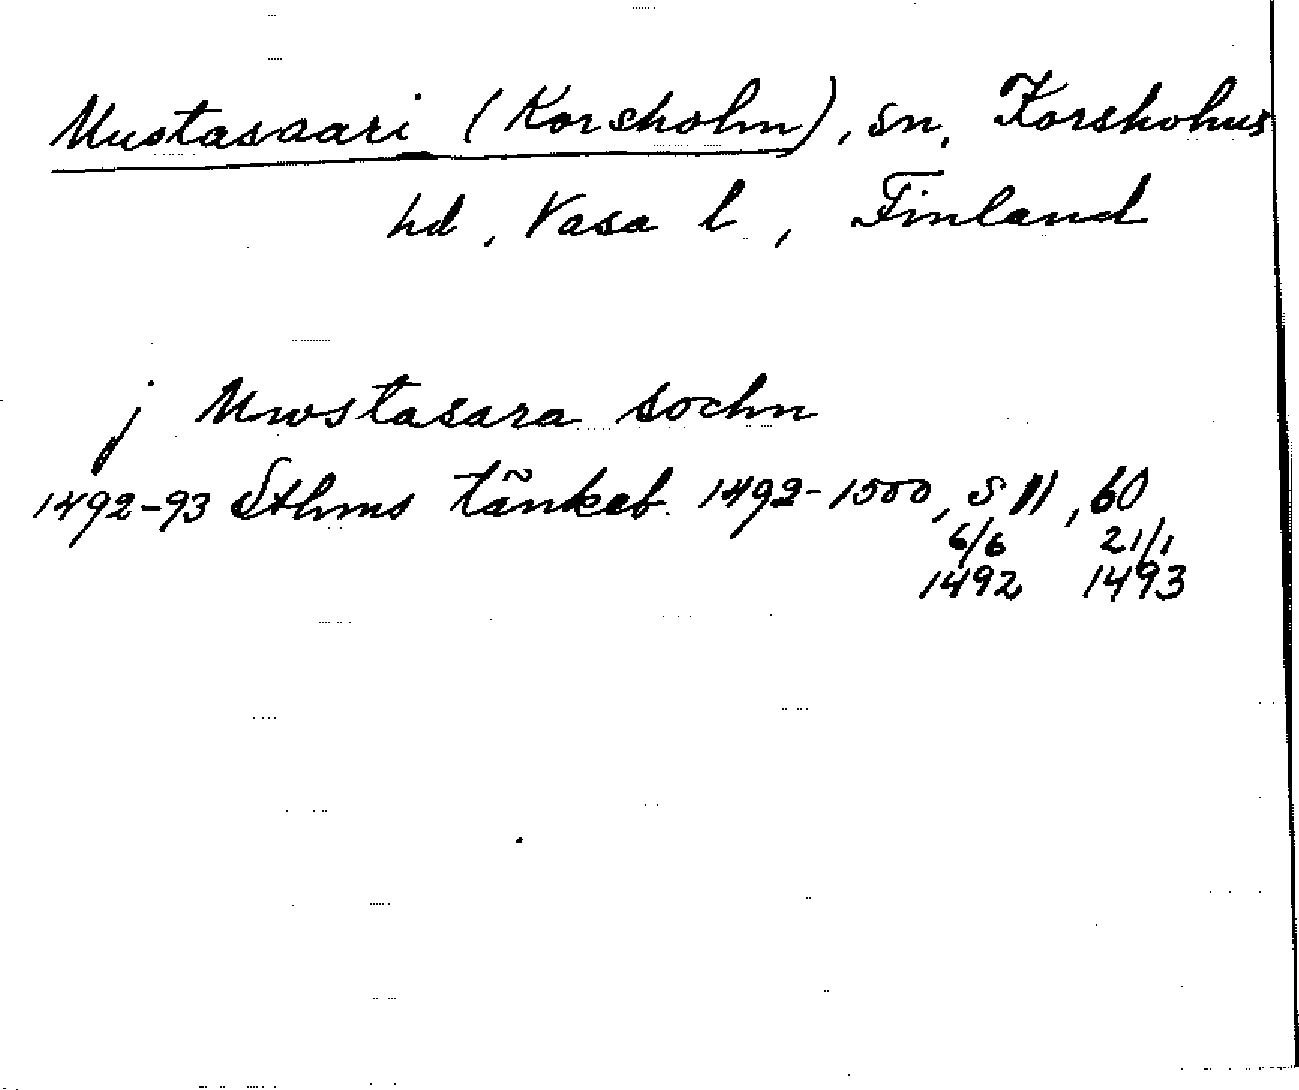 Mustasaari (Korsholm), sn, Korsholms
hd, Vasa l, Finland
j Mwstasara sochn
1492-93 Sthms tänkeb. 1492-1500, s 11, 60
6/6 21/1
1492 1493